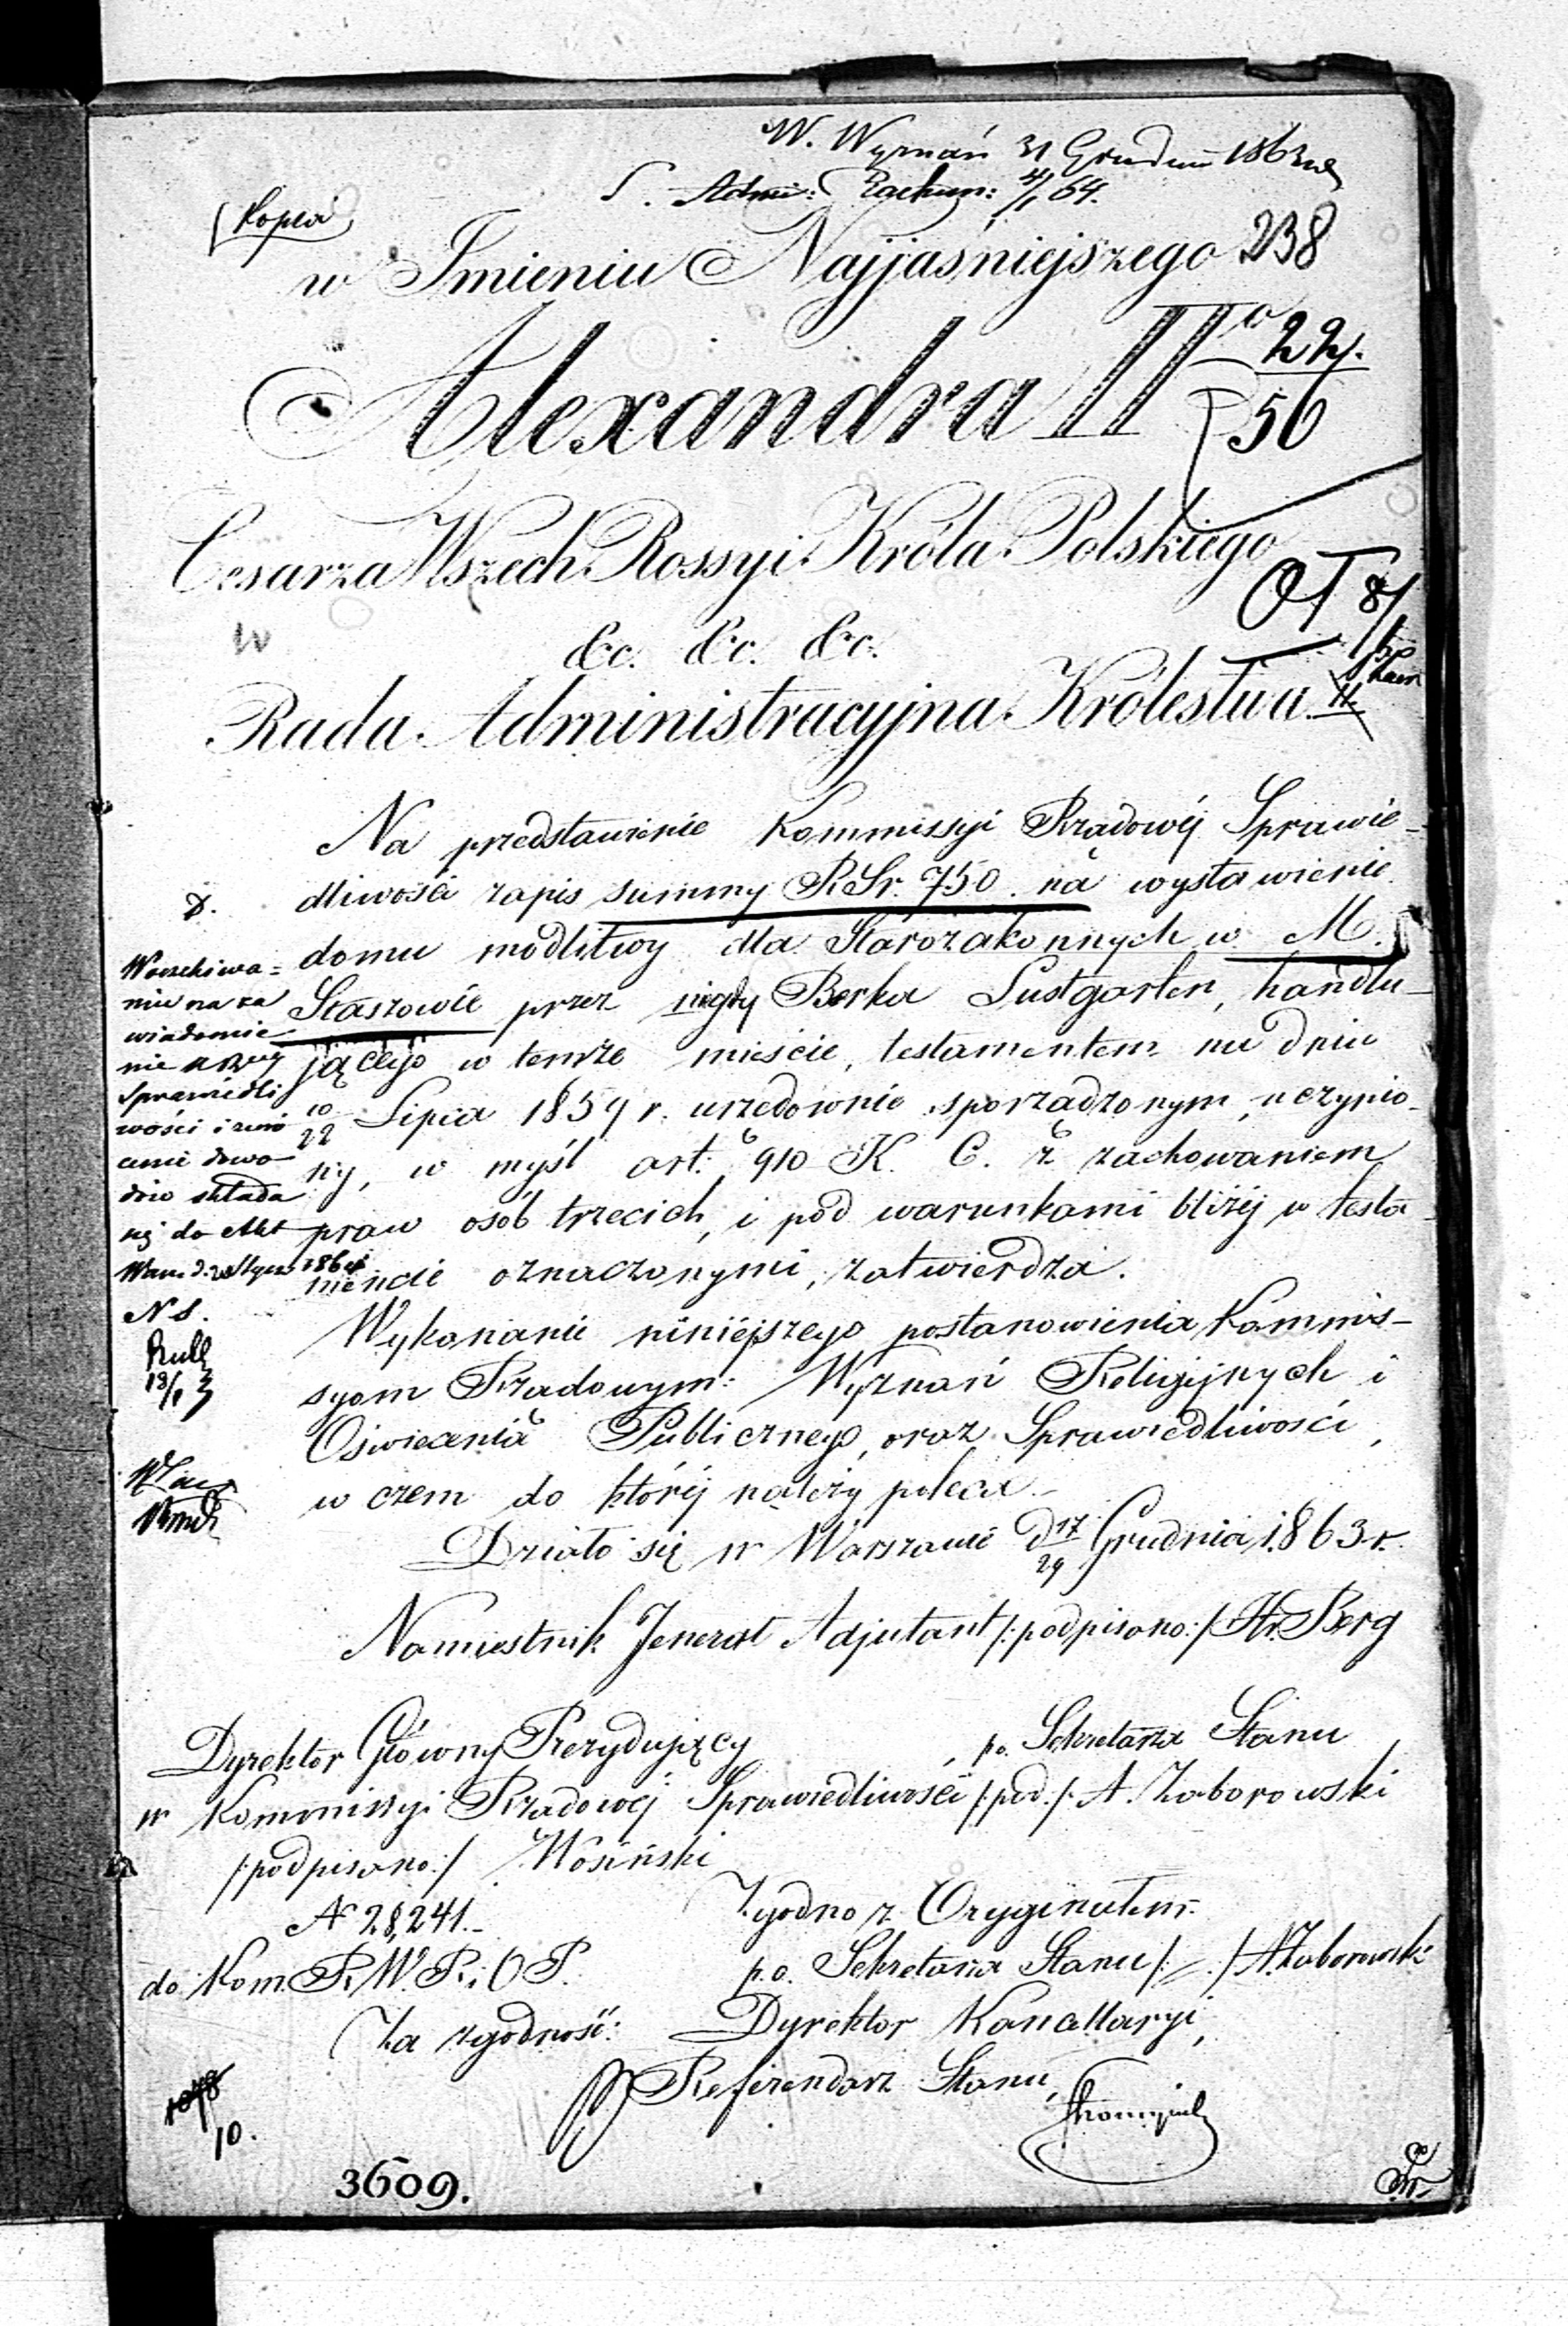 W. Wyznań 31 Grudnia 1863
S. Admi: Rachun: 4/1 64.
Kopia
238
w Imieniu Najjaśniejszego
Alexandra IIo
22.
56
Cesarza Wszech Rossyi Króla Polskiego
&c. &c. &c.
Rada Administracyjna Królestwa.
Na przedstawienie Kommissyi Rządowéj Sprawie-
dliwości zapis summy RSr. 750. na wystawienie
domu modlitwy dla Starozakonnych w M.
Staszowie przez niegdy Berka Lustgarten, handlu-
jącego w temże mieście, testamentem na dniu
10/22 Lipca 1859 r. urzędownie sporządzonym, uczynio-
ny, w myśl art. 910 K. C. z zachowaniem
praw osób trzecich, i pod warunkami bliżéj w testa-
mencie oznaczonymi, zatwierdza.
Wykonanie niniejszego postanowienia Kommis-
syom Rządowym: Wyznań Religijnych i
Oświecenia Publicznego, oraz Sprawiedliwości,
w czem do któréj należy poleca.-
Działo się w Warszawie d 17/29 Grudnia 1863 r.
Namiestnik Jenerał Adjutant /:podpisano:/ Hr. Berg
Dyrektor Główny Prezydujący
w Kommissyi Rządowej Sprawiedliwości
/:podpisano:/ Wosiński
p.o. Sekretarza Stanu
/:pod:/ A. Zaborowski
N 28,241.-
do Kom. R. W. R. i O P.
Zgodno z Oryginałem.
p.o. Sekretarza Stanu /:-:/ A. Zaborowski
Za zgodność: Dyrektor Kancellaryi,
Referendarz Stanu,
10.
3609.
Wo oczekiwa=
niu na za
wiadomie
nie
Sprawiedli
wości i
cenie dowo
dów składa
się do Akt
N 8.
13/1